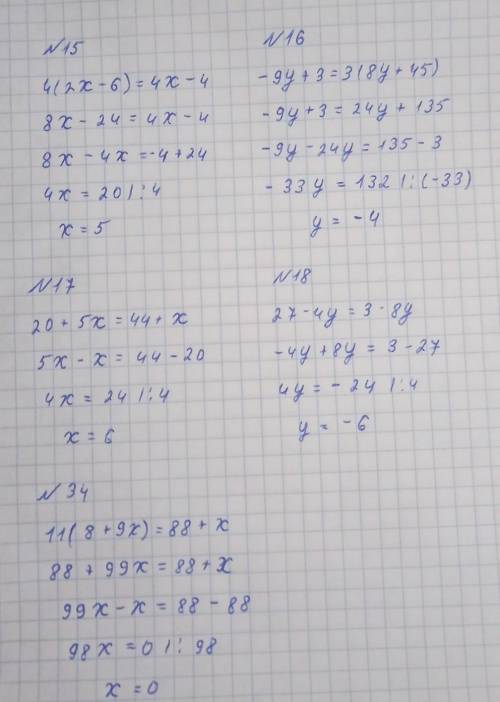 №15
4(2x-6)=4x-4
8x-24=4x-4
8x-4x=-4+24
4x=20 |:4
x=5
№16
-9y+3=3(8y+45)
-9y+3=24y+135
-9y-24y=135-3
-33y=132 |:(-33)
y=-4
№17
20+5x=44+x
5x-x=44-20
4x=24 |:4
x=6
№18
27-4y=3-8y
-4y+8y=3-27
4y=-24 |:4
y=-6
№34
11(8+9x)=88+x
88+99x=88+x
99x-x=88-88
98x=0 |:98
x=0